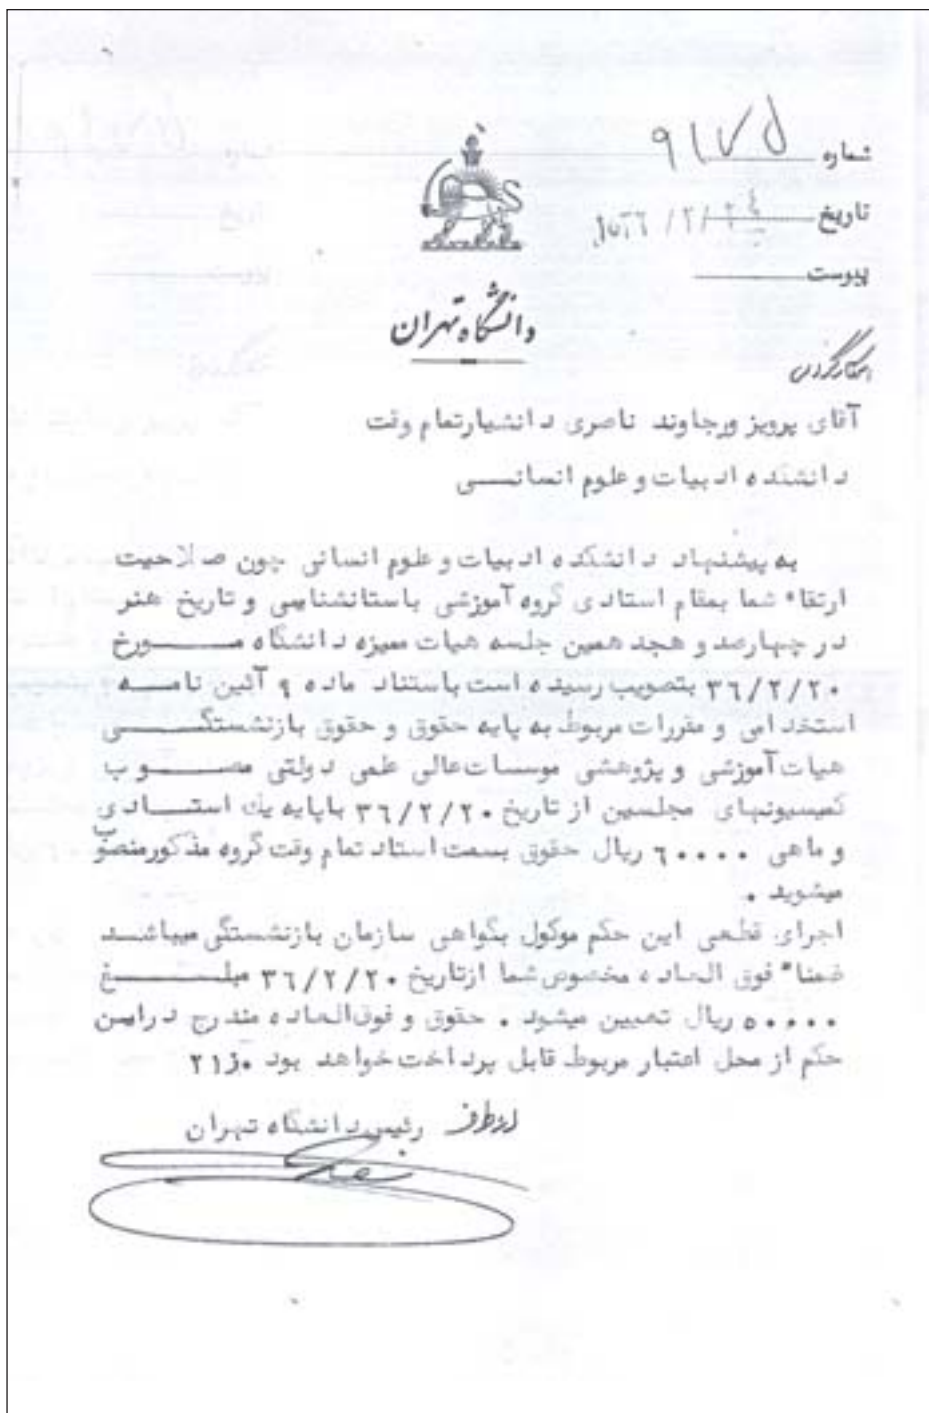 شماره ۹۱۷۵
تاریخ ۲۵۳۶/۲/۲۴
پیوست
دانشگاه تهران
آقای پرویز ورجاوند ناصری دانشیارتمام وقت
دانشکده ادبیات و علوم انسانی
به پیشنهاد دانشکده ادبیات و علوم انسانی چون صلاحیت
ارتقاء شما بمقام استادی گروه آموزشی باستانشناسی و تاریخ هنر
در چهارصد و هجدهمین جلسه هیات ممیزه دانشگاه مورخ
۳۶/۲/۲۰ بتصویب رسیده است باستناد ماده ۹ آئین نامه
استخدامی و مقررات مربوط به پایه حقوق و حقوق بازنشستگی
هیات آموزشی و پژوهشی موسسات عالی علمی دولتی مصوب
کمیسیونهای مجلسین از تاریخ ۳۶/۲/۲۰ باپایه یک استادی
و ماهی ۶۰۰۰۰ ریال حقوق بسمت استاد تمام وقت گروه مذکور منصوب
میشوید .
اجرای قطعی این حکم موکول بگواهی سازمان بازنشستگی میباشد
ضمناً فوق العاده مخصوص شما ازتاریخ ۳۶/۲/۲۰ مبلغ
۵۰۰۰۰ ریال تعیین میشود . حقوق و فوق العاده مندرج دراین
حکم از محل اعتبار مربوط قابل پرداخت خواهد بود .ز۲۱
از طرف رئیس دانشگاه تهران